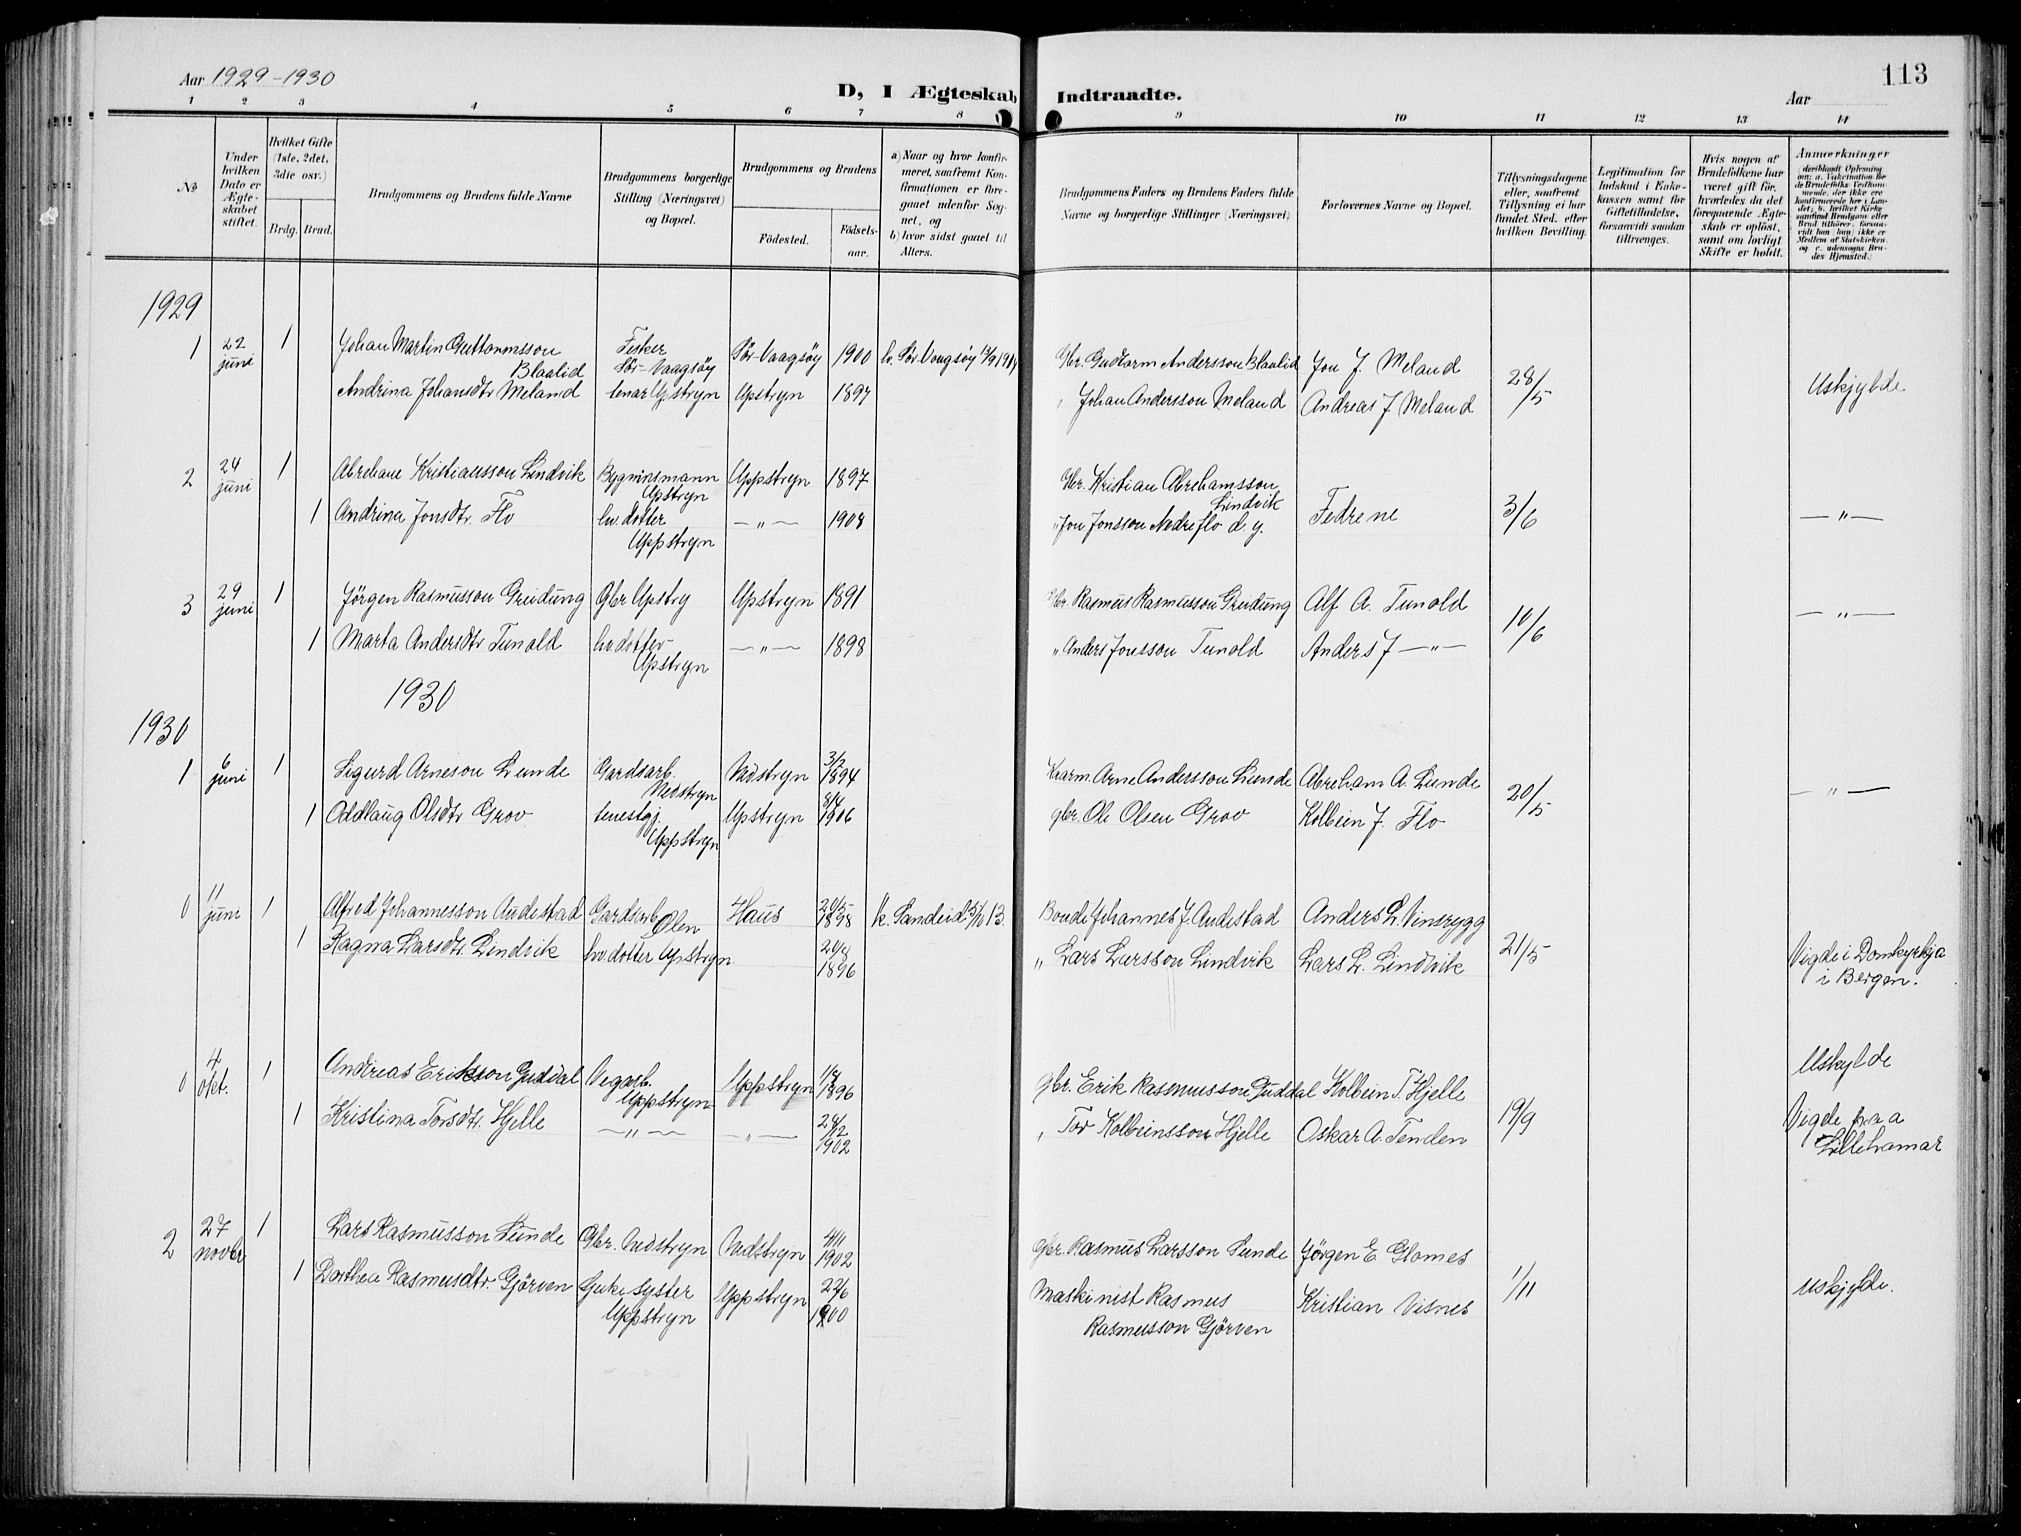 113
Aar 1929-1930
D, I Ægteskab Indtraadte.
Aar
1 2 3 4 5 6 7 8 9 10 11 12 13 14
No
Under hvilken Dato er Ægteskabet stiftet.
Hvilket Gifte (1ste, 2det, 3die osv.)
Brdg. Brud.
Brudgommens og Brudens fulde Navne
Brudgommens borgerlige Stilling (Næringsvei) og Bopæl.
Brudgommens og Brudens
Fødested.
Fødselsaar.
a) Naar og hvor konfirmeret, saafremt Konfirmationen er foregaaet udenfor Sognet, og
b) hvor sidst gaaet til Alters.
Brudgommens Faders og Brudens Faders fulde Navne og borgerlige Stillinger (Næringsvei)
Forlovernes Navne og Bopæl.
Tillysningsdagene eller, saafremt Tillysning ei har fundet Sted, efter hvilken Bevilling.
Legitimation for Indskud i Enkekassen samt for Giftetilladelse, forsaavidt saadan tiltrænges.
Hvis nogen af Brudefolkene har været gift før, hvorledes da det foregaaende Ægteskab er opløst, samt om lovligt Skifte er holdt.
Anmærkninger
1929
1 22 juni 1 Johan Martin Guttormsson Blaalid Fisker Sør-Vaagsøy Sør-Vaagsøy 1900 k. Sør Vaagsøy Gbr. Gudtorm Andersson Blaalid Jon J. Meland 28/5 Uskjylde.
Andrina Johansdtr Meland tenar Upstryn Upstryn 1897 " Johan Andersson Meland Andreas J Meland
2 24 juni 1 Abraham Kristiansson Lindvik Bygningsmann Upstryn Uppstryn 1897 Gbr. Kristian Abrahamsson Lindvik Fedrene 3/6 — " —
1 Andrina Jonsdtr. Flo hv. dotter Uppstryn — " — 1908 " Jon Jonsson Nedreflo d. y.
3 29 juni 1 Jørgen Rasmusson Greidung Gbr Upstry Upstryn 1891 Gbr. Rasmus Rasmusson Greidung Alf A. Tunold 10/6 — " —
1 Marta Andersdtr Tunold hv. dotter Upstryn — " — 1898 " Anders Jonsson Tunold Anders J — " —
1930
1930
1 6 juni 1 Sigurd Arneson Lunde Gardsarb. Nedstryn Nedstryn 3/2 1894 Kvarm. Arne Andersson Lunde Abraham A. Lunde 20/5 — " —
1 Oddlaug Olsdtr Grov tenestgj. Uppstryn Upstryn 8/4 1906 gbr. Ole Olsen Grov Kolbein J. Flo
0 11 juni 1 Alfred Johannesson Audestad Gardsarb. Ølen Haus 20/5 1898 k. Sandeid 5/10 13. Bonde Johannes J. Audestad Anders L. Vinsrygg 21/5
1 Ragna Larsdtr. Lindvik hv. dotter Upstryn 1896 " Lars Larsson Lindvik Lars L. Lindvik Vigde i Domkyrkja i Bergen.
0 4 okt. 1 Andreas Erikson Guddal Vegarb. Uppstryn Uppstryn 1896 gbr. Erik Rasmusson Guddal Kolbein T. Hjelle 19/9 Uskylde
1 Kristina Torsdtr. Hjelle — " — — " — 24/12 1902 " Tor Kolbeinsson Hjelle Oskar A. Tenden Vigde paa Lillehamar
2 27 novbr 1 Lars Rasmusson Sunde Gbr. Nedstryn Nedstryn 4/11 1902 Gbr. Rasmus Larsson Sunde Jørgen E. Glomes 1/11 Uskjylde.
1 Dorthea Rasmusdtr. Gjørven Sjukesyster Uppstryn Uppstryn 22/6 1900 Maskinist Rasmus Rasmusson Gjørven Kristian Visnes